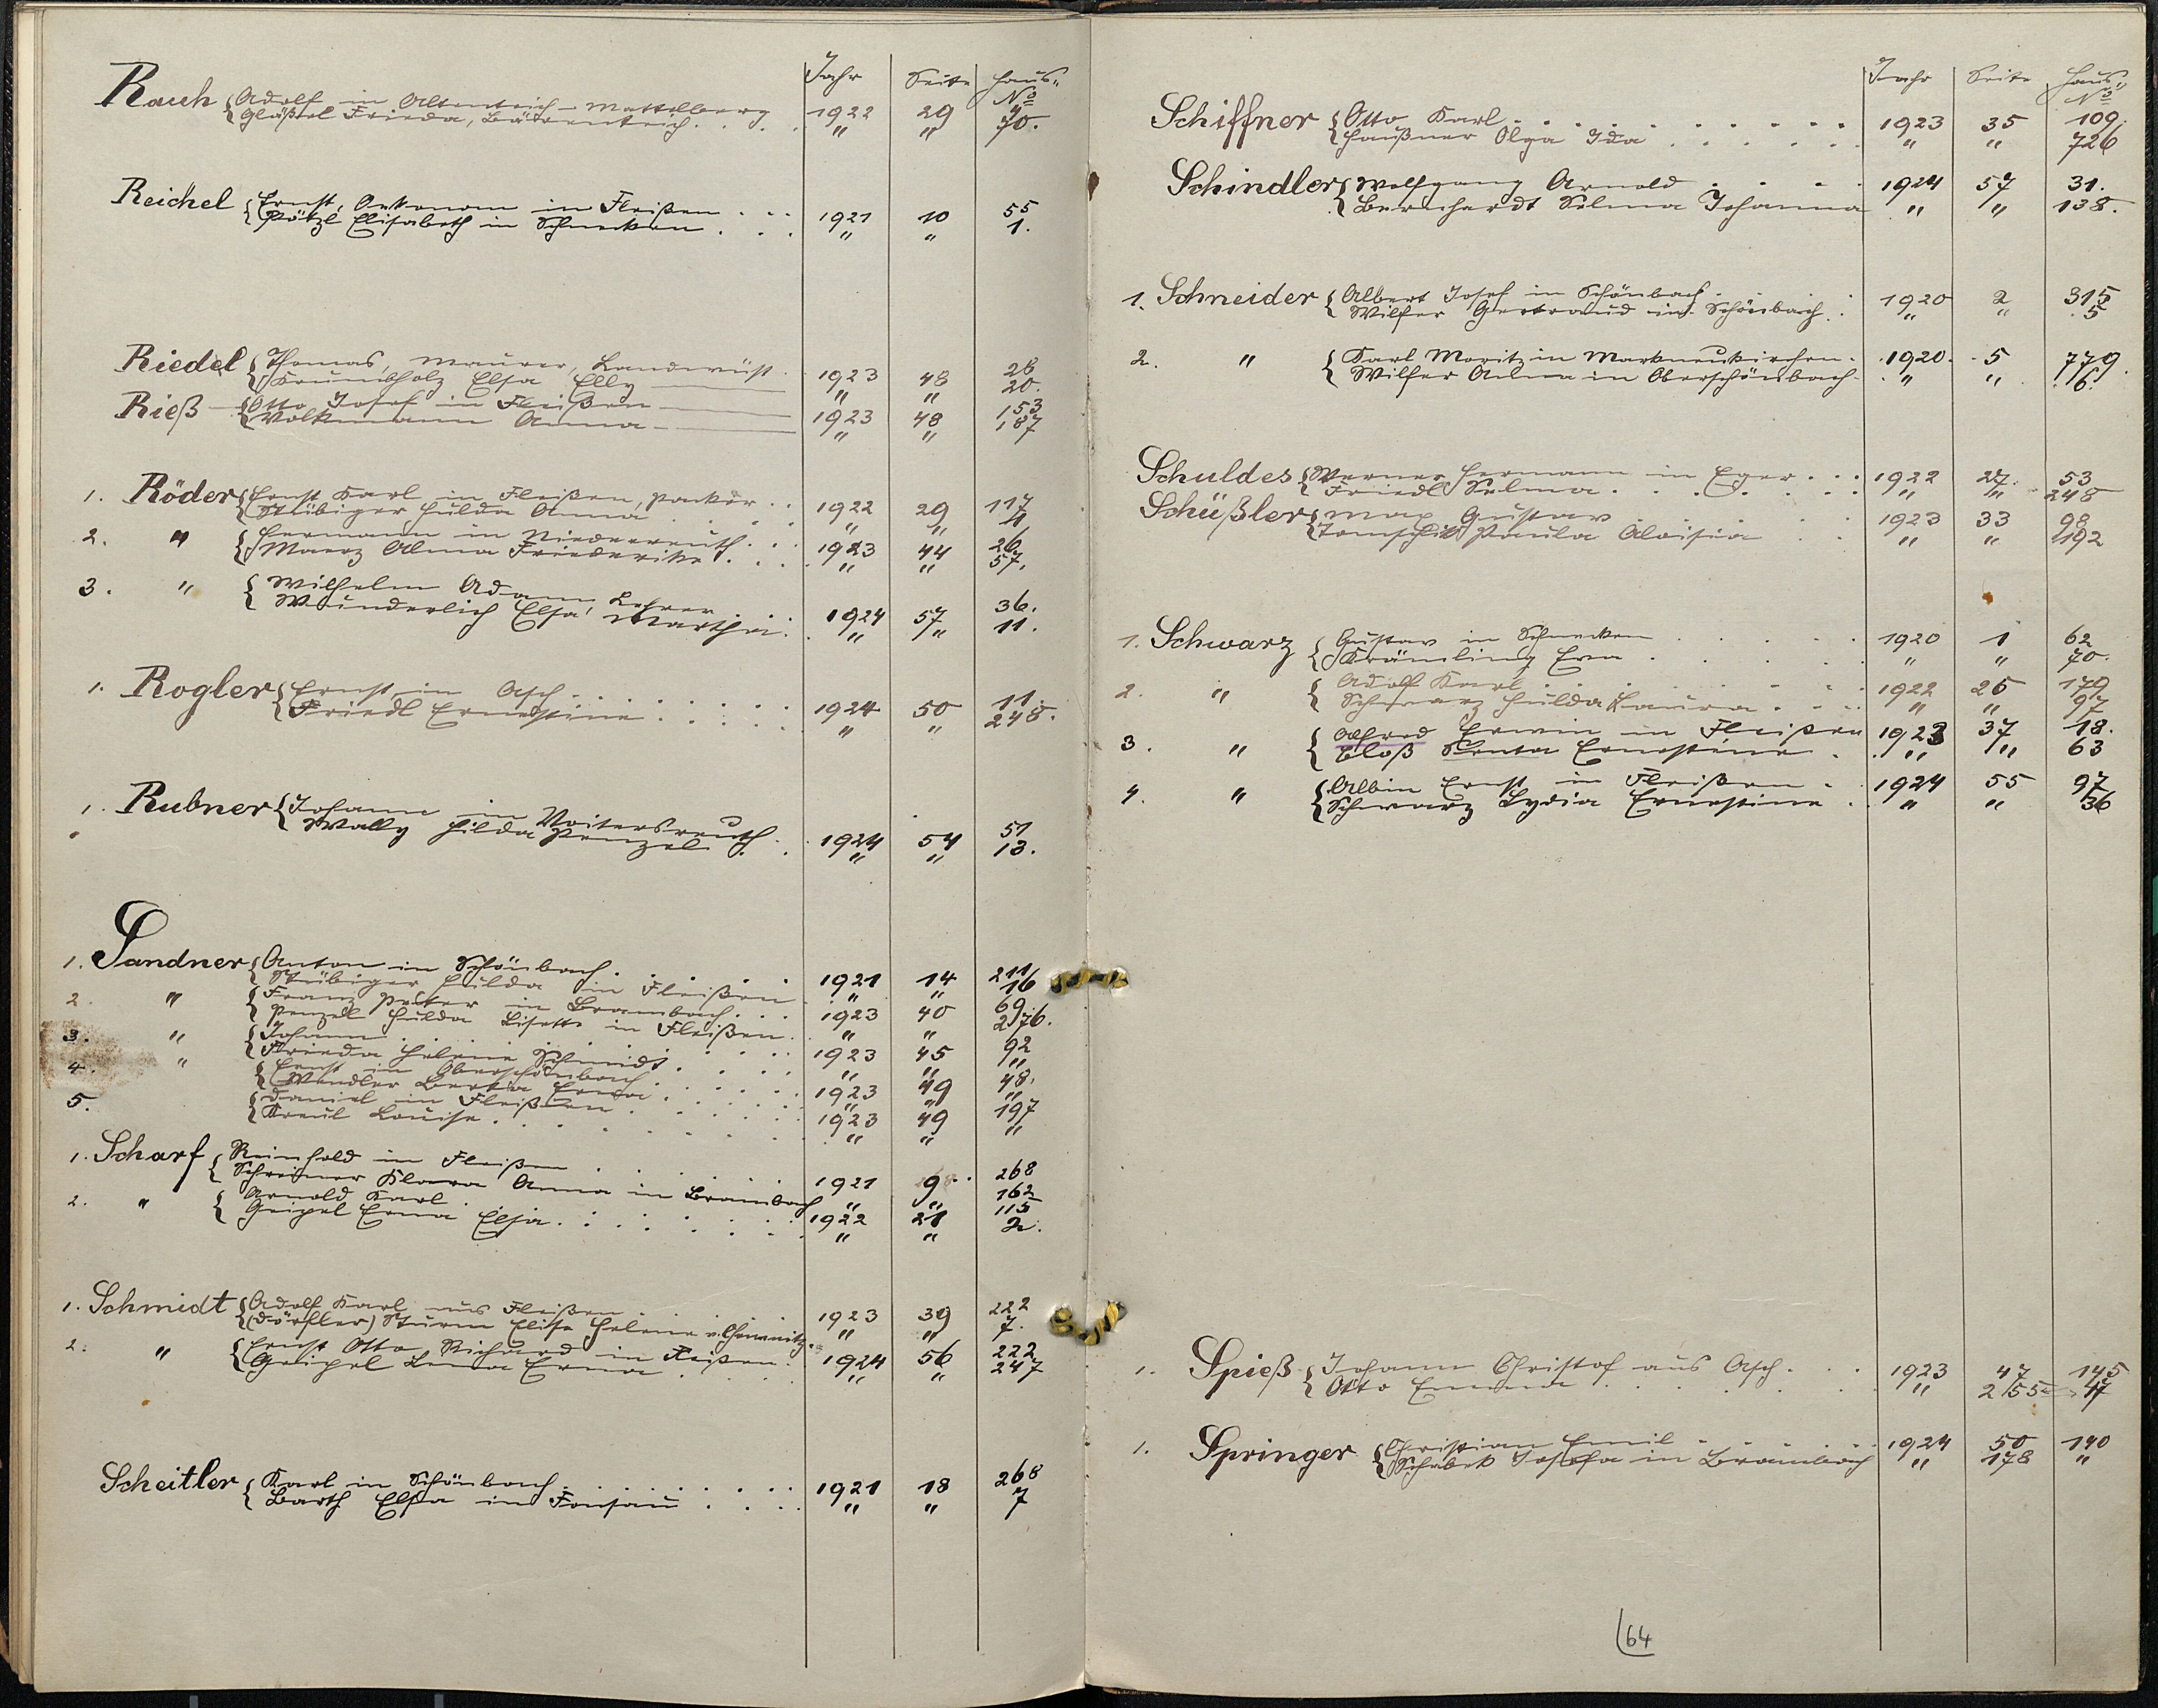 Jahr Seite Haus-
No
Rauh { Adolf in Altenteich - 1922 29 4
Gläßel Frieda, Bärenteich . . . " " 70.
Reichel { Ernst, Oekonom in Fleißen . . . 1921 10 55
Pötzl Elisabeth in Schnecken . . . " " 1.
Riedel { Thomas, Maurer, Landwüst . 1923 48 28
Krumbholz Elsa Elly " " 20.
Rieß { Otto Josef in Fleißen 1923 48 153
Volkmann Anna " " 187
1. Röder { Ernst Karl in Fleißen, . . 1922 29 117
Stübiger Hulda Anna . . . . " " 4
2. " { Hermann in Niederreuth . . . 1923 44 26
Maerz Alma Friederike . . . " " 57.
3. " { Wilhelm Adam, Lehrer . . . 1924 57 36.
Wunderlich Elsa Martha . " " 11.
1. Rogler { Ernst in Asch . . . . . . 1924 50 11.
Friedl Ernestine . . . . " " 248.
1. Rubner { Johann in Voitersreuth . 1924 54 51
Wally Hilda Penzel . . " " 13.
1. Sandner { Anton in Schönbach . . . . 1921 14 211
Stübiger Hulda in Fleißen " " 16
2. " { Franz Peter in Brambach . . . 1923 40 69
Penzel Hulda Lisette in Fleißen . " " 276.
3. " { Johann . . . . . . 1923 45 92
Frieda Helene Schmidt . . . . " " "
4. " { Ernst in Oberschönbach . . . . 1923 49 48.
Wendler Berta Erna . . . . " " "
5. { Daniel in Fleißen . . . . . 1923 49 197
Kreul Louise . . . . . . " " "
1. Scharf { Reinhold in Fleißen . . . . . 1921 9 . . 268
Schreiner Klara Anna in Brambach " " 162
2. " { Arnold Karl . . . . . 1922 21 115
Geipel Erna Elsa . . . . . . " " 2.
1. Schmidt { Adolf Karl aus Fleißen . . . . 1923 39 222
(Dörfler) Sturm Elise Helene v. Chemnitz . " " 7.
2. " { Ernst Otto Richard in Fleißen . 1924 56 222
Geipel Erna . . . . " " 247
Scheitler { Karl in Schönbach . . . . . . 1921 18 268
Barth Elsa in Fonsau . . . . " " 7
Jahr Seite Haus-
No
Schiffner { Otto Karl . . . . . . . . . 1923 35 109.
Haußner Olga Ida . . . . . " " 726
Schindler { Wolfgang Arnold . . . . 1924 57 31.
Bernhardt Selma Johanna " " 138.
1. Schneider { Albert Josef in Schönbach . . . . 1920 2 315
Wilfer Gertraud in Schönbach . . " " 5
2. " { Karl Moritz in Markneukirchen . 1920 . 5 779.
Wilfer Alma in Oberschönbach . " " 6.
Schuldes { Werner Hermann in Eger . . . 1922 27. 53
Friedl Selma . . . . . . " " 248
Schüßler { Max Gustav . . . . . 1923 33 98
Paula Aloisia . . " " 192
1. Schwarz { Gustav in Schnecken . . . . . 1920 1 62
Krämling Erna . . . . . " " 70.
2. " { Adolf Karl . . . . . . . 1922 26 179
Schwarz Hulda Laura . . . " " 97
3. " { Alfred Erwin in Fleißen 1923 37 18.
Ploß Senta Ernestine . " " 63
4. " { Albin Ernst in Fleißen . 1924 55 97
Schwarz Lydia Ernestine . " " 36
1. Spieß { Johann Christof aus Asch . . . 1923 47 145
Otto Emma . . . . . . " 255 47
1. Springer { Christian Emil . . . . . 1924 50 140
Josefa in Brambach " 178 "
64